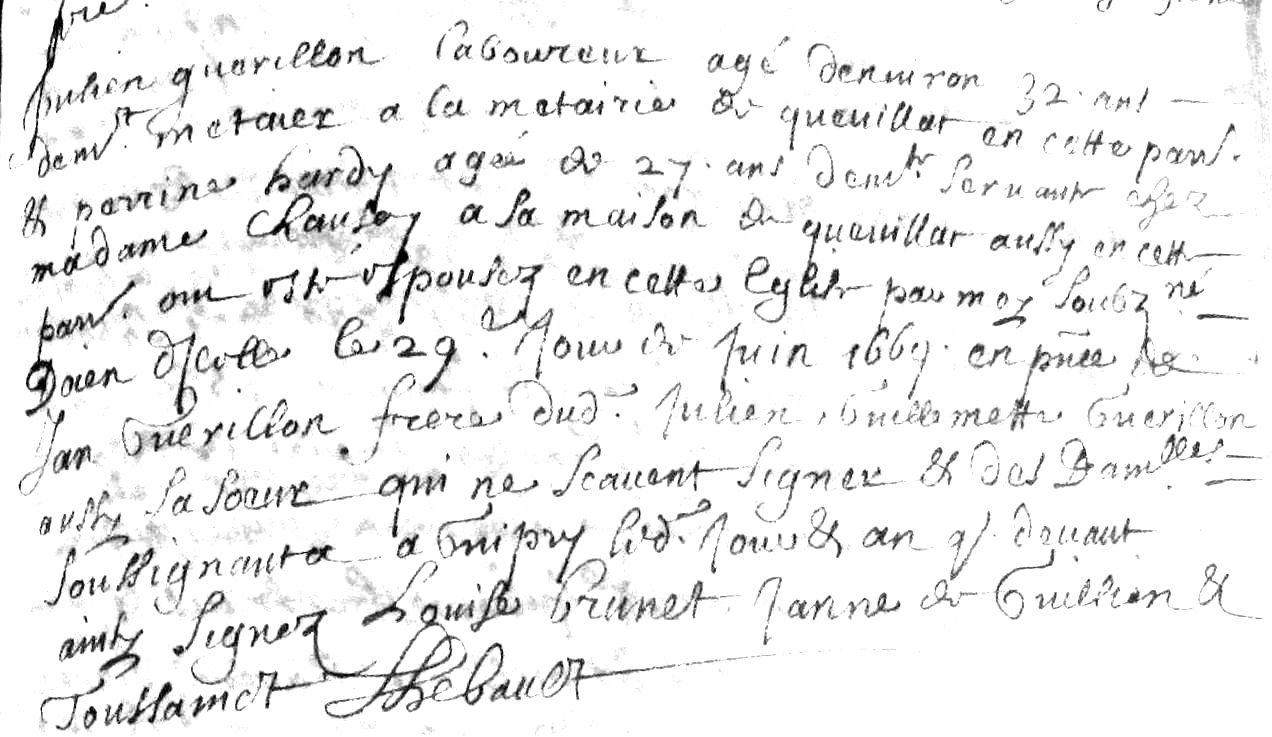 pre
Julien guerillon laboureux agé denuiron 32. ans
demt. metaiex a la metairie de queuillar en cette parr.
& perrine hardy agée de 27. ans demtr. seruante chez
madame Chausey a la maison de queuillar aussy en cette
parr. ont esté espousez en cette Eglise par moy soubzné
Doien le 29.e Jour de Juin 1669. en pnce de
Jan Guerillon frere dud. Julien, Guillemette Guerillon
aussy sa soeur qui ne scauent signer & des Damlles.
soussignanta a Guipry led. Jour & an q. deuant
ainsy signez Louise Brunet Janne de &
Toussainct Thebault